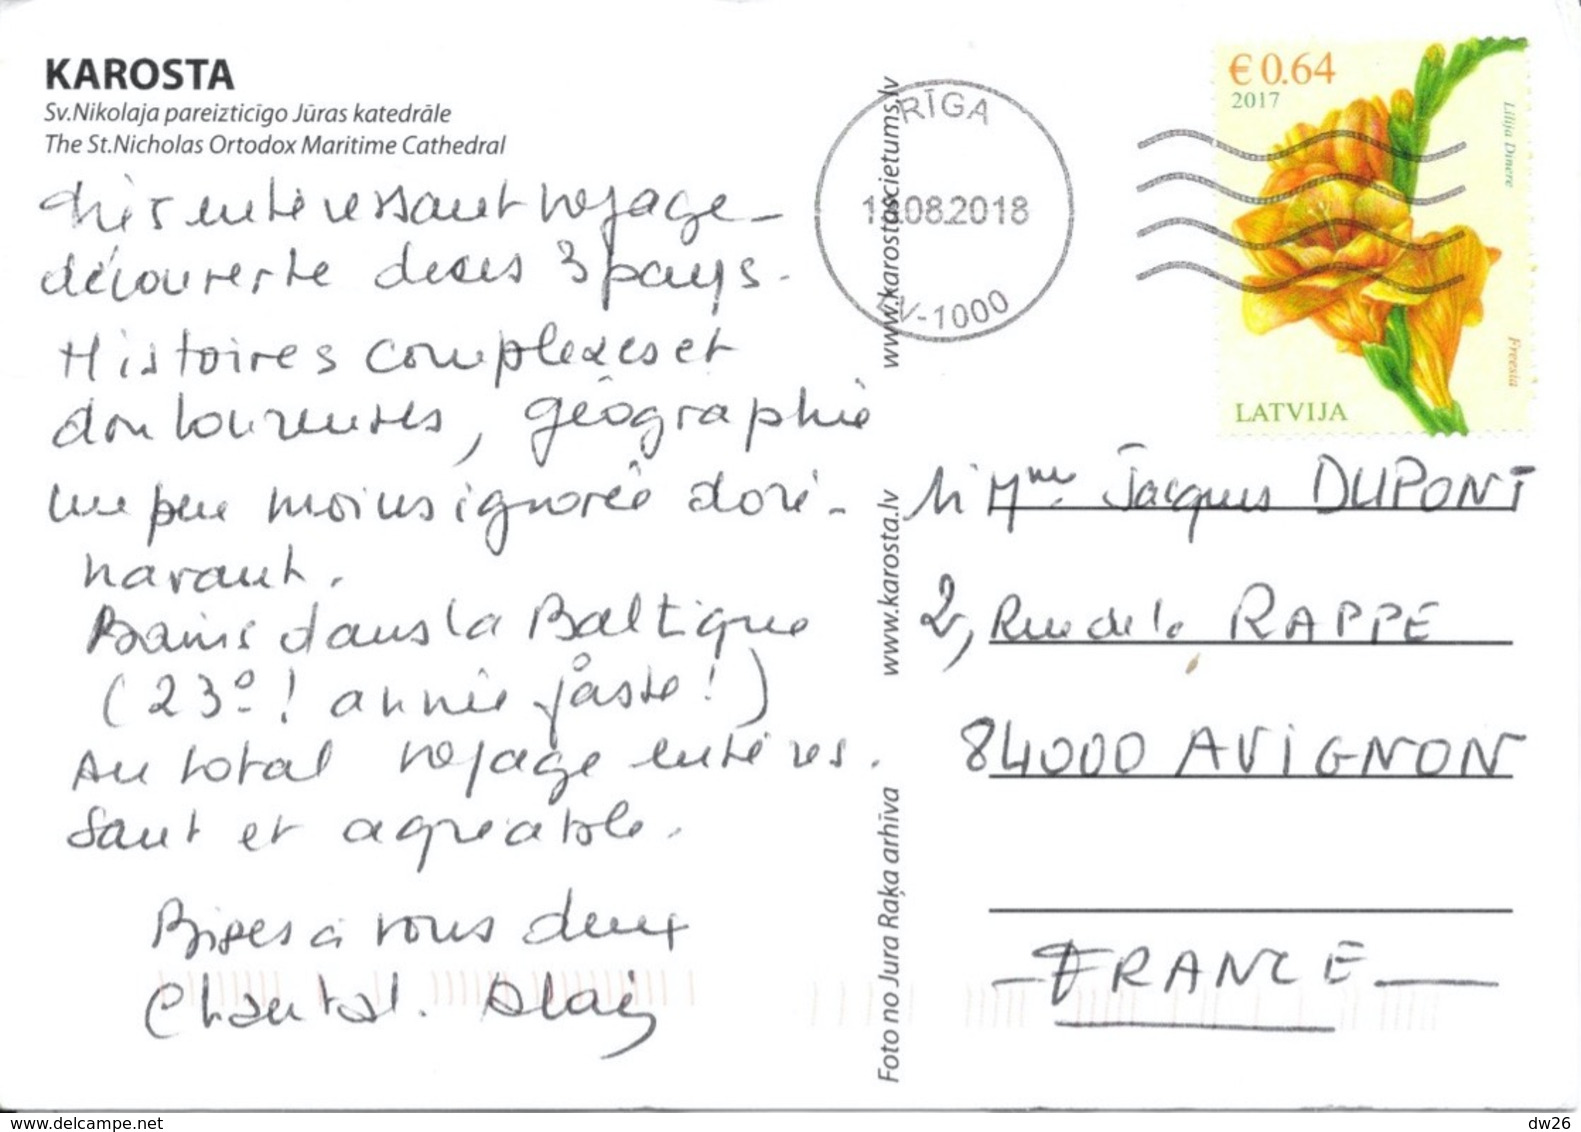 KAROSTA
Sv.Nikolaja pareizticīgo Jūras katedrāle
The St.Nicholas Ortodox Maritime Cathedral
Très intéressant voyage -
découverte de ces 3 pays.
Histoires complexes et
douloureuses, géographie
un peu moins ignorée doré-
navant.
Bains dans la Baltique
(23°! année faste!)
Au total voyage intéres.
sant et agréable.
Bises à vous deux
Chantal. Alain
RĪGA
.08.2018
LV-1000
www.karostascietums.lv
www.karosta.lv
Foto no Jura Raķa arhīva
€ 0.64
2017
Lilija Dinere
Freesia
LATVIJA
M Mme Jacques DUPONT
2, Rue de la RAPPE
84000 AVIGNON
- FRANCE -
www.delcampe.net
dw26